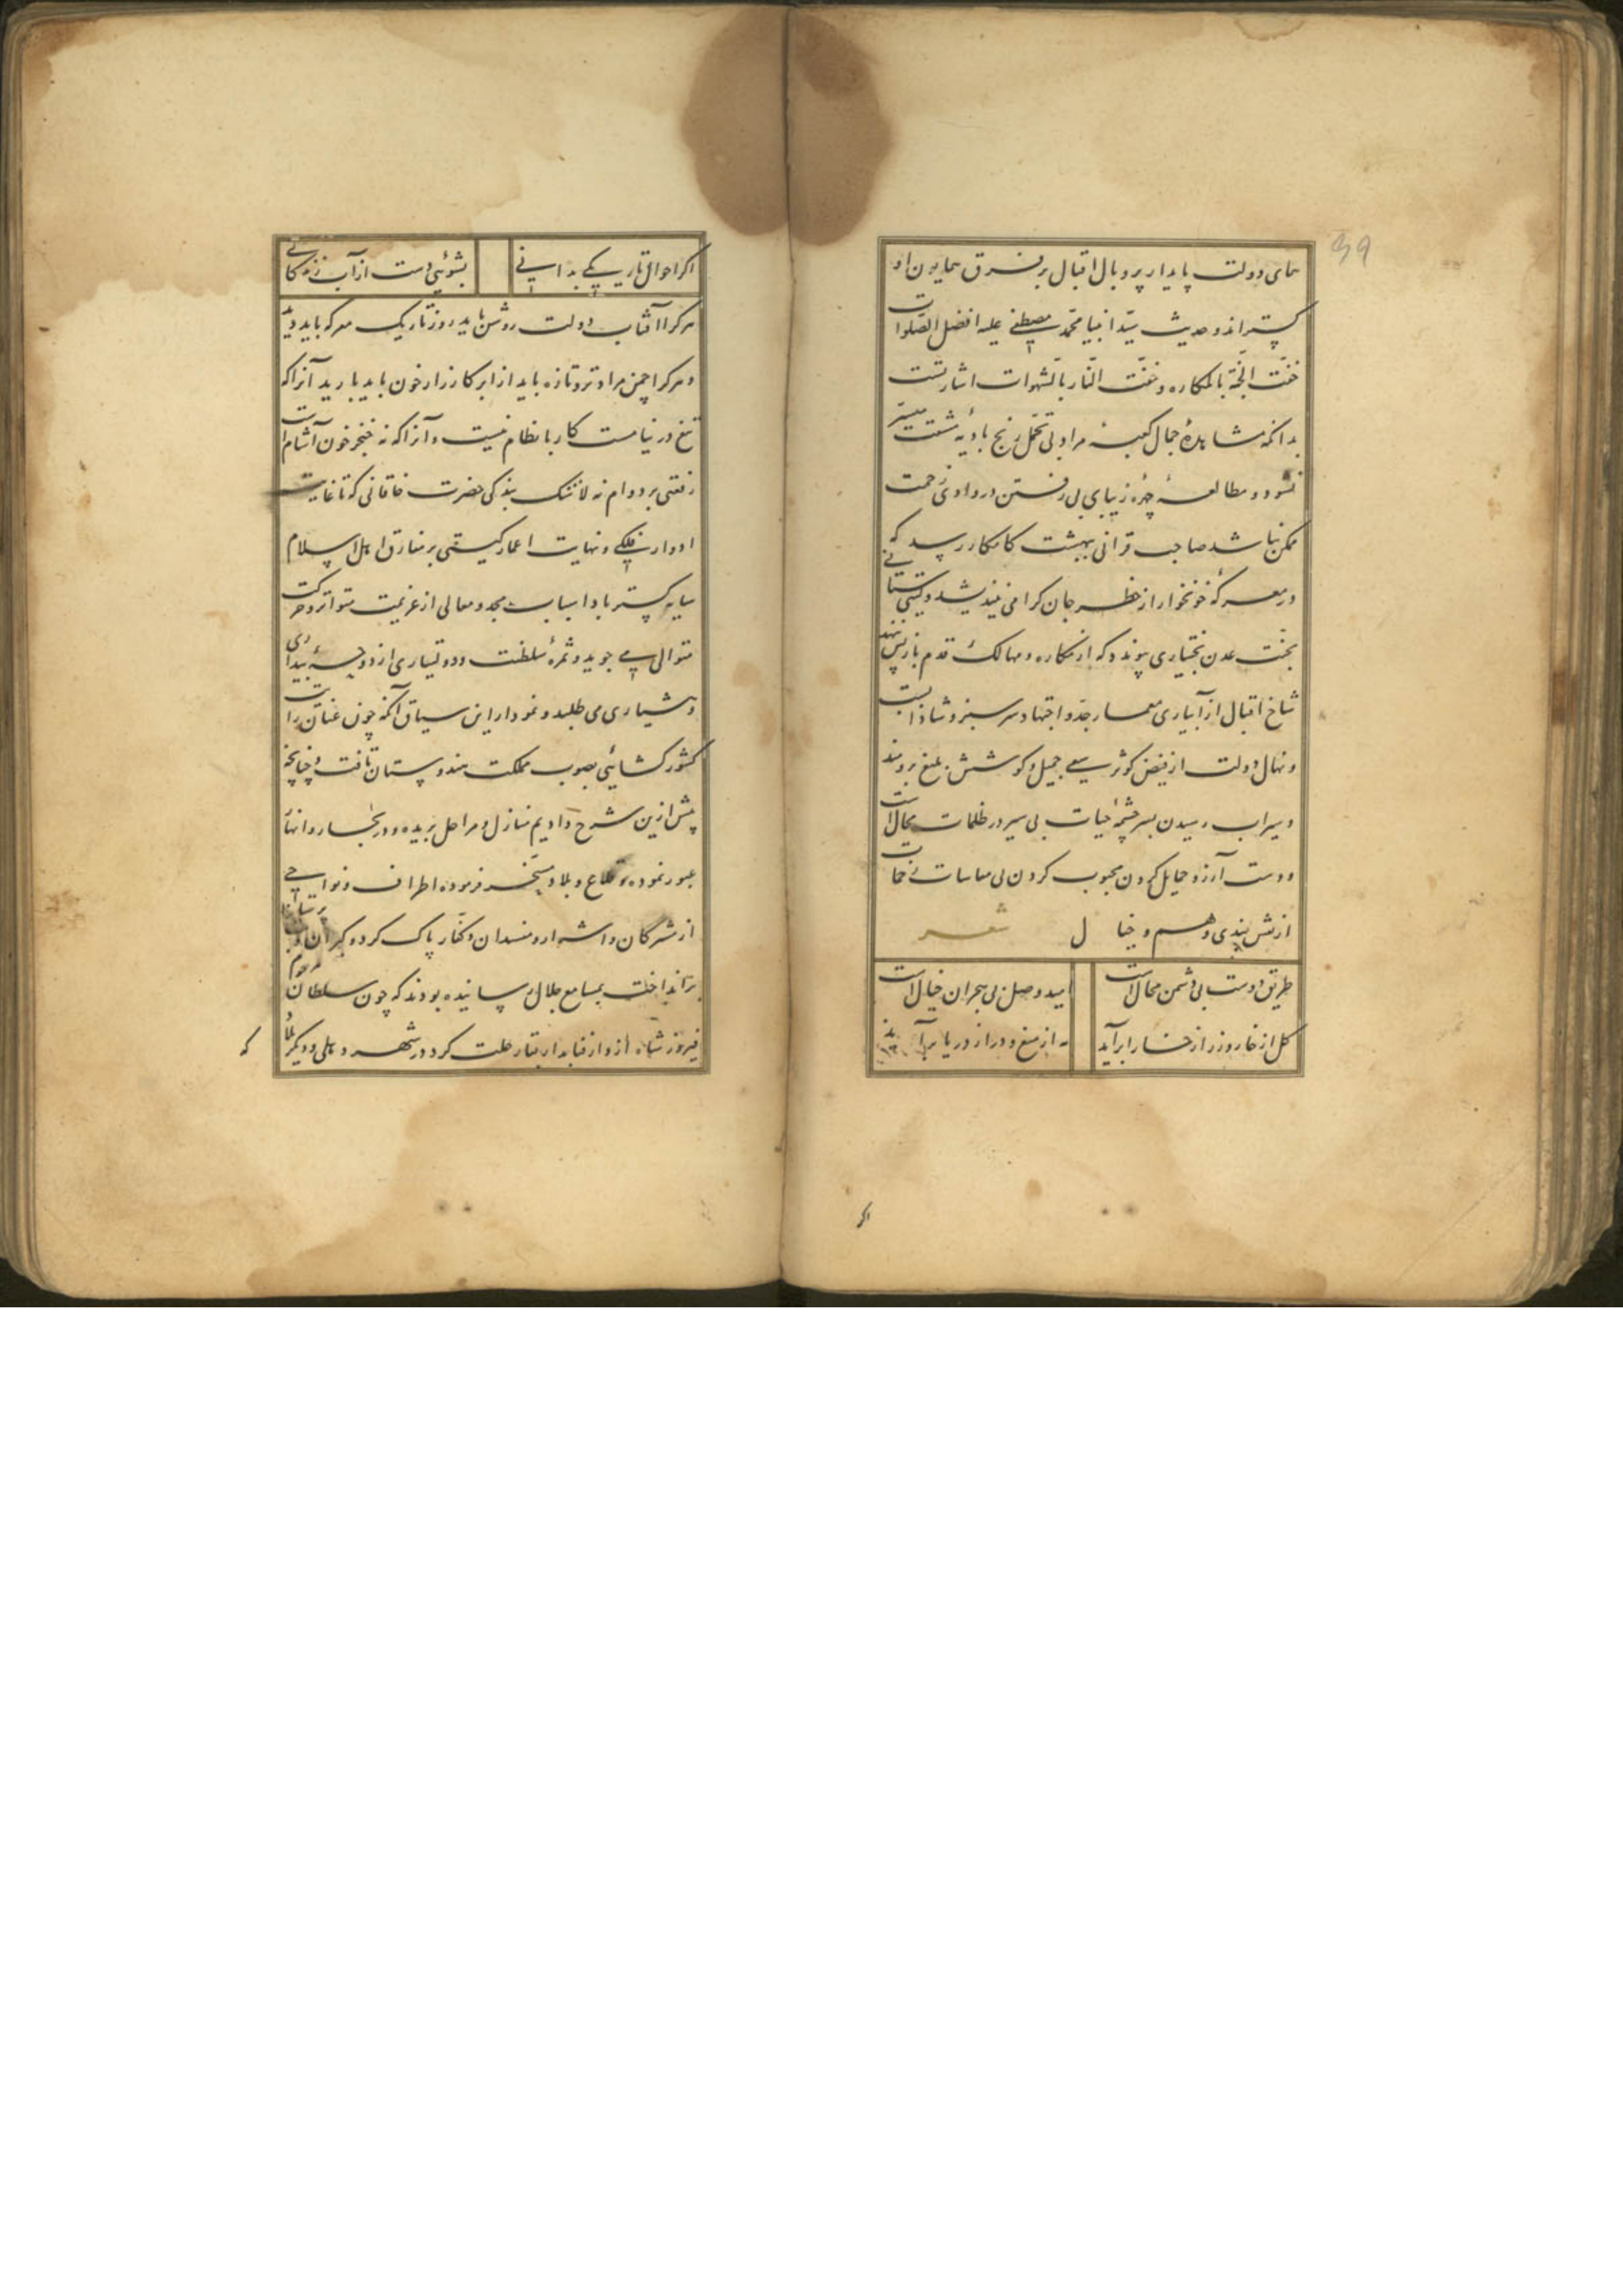 همای دولت پایدار پر و بال اقبال بر فرق همایون او
کستراند و حدیث سید انبیا محمد مصطفی علیه افضل الصلوات
حفت الجنة بالمکاره و حفت النار بالشهوات اشارتست
بدانکه مشاهدهٔ جمال کعبهٔ مراد بی تحمل رنج بادیه مشقت میسر
نشود و مطالعهٔ چهره زیبای بی رفتن در وادی زحمت
ممکن نباشد صاحب قرانی ببهشت کامکار رسد که
در معرکهٔ خونخوار از خطر جان کرامی نیندیشد و کیتی ستانی
بجنت عدن بختیاری پیوندد که از مکاره و مهالک قدم باز پس ننهد
شاخ اقبال از آبیاری معمار جد و اجتهاد سرسبز و شاداب
و نهال دولت از فیض کوثر سعی جمیل و کوشش بلیغ برومند
و سیراب رسیدن بسرچشمهٔ حیات بی سیر در ظلمات محال است
و دست آرزو حمایل کردن محبوب کردن بی مقاسات زحمات
از نقش بندی وهم و خیال شعر
طریق دوست بی دشمن محال است امید وصل بی هجران خیال است
کل از خار و زر از خارا برآید مه از میغ و در از دریا برآید
اکر
39
اکر احوال تاریکی بدانی بشوئی دست از آب زندکانی
هرکرا آفتاب دولت روشن باید روز تاریک معرکه باید دید
و هرکرا چمن مراد تر و تازه باید از ابر کارزار خون باید بارید آنرا که
تیغ در نیامست کار بانظام نیست و آنرا که نه خنجر خون آشام است
رفعتی بر دوام نه لاشک بندکی حضرت خاقانی که تا غایت
ادوار فلکی و نهایت اعمار کیتی بر مفارق اهل اسلام
سایه کستر باد اسباب مجد و معالی از عزیمت متواتر و حرکت
متوالی می جوید و ثمرهٔ سلطنت و دولتیاری از دوحهٔ بیداری
و هشیاری می طلبد و نمودار این سیاق آنکه چون عنان رایت
کشورکشائی بصوب مملکت هندوستان تافت و چنانچه
پیش ازین شرح دادیم منازل و مراحل بریده و در بحار و انهار
عبور نموده و قلاع و بلاد مسخر فرموده اطراف و نواحی
از مشرکان و اشرار و مفسدان و کفار پاک کرد و کبران
برانداخت بمسامع جلال رسانیده بودند که چون سلطان مرحوم
فیروز شاه از دار فنا بدار بقا رحلت کرد در شهر دهلی و دیکر
که